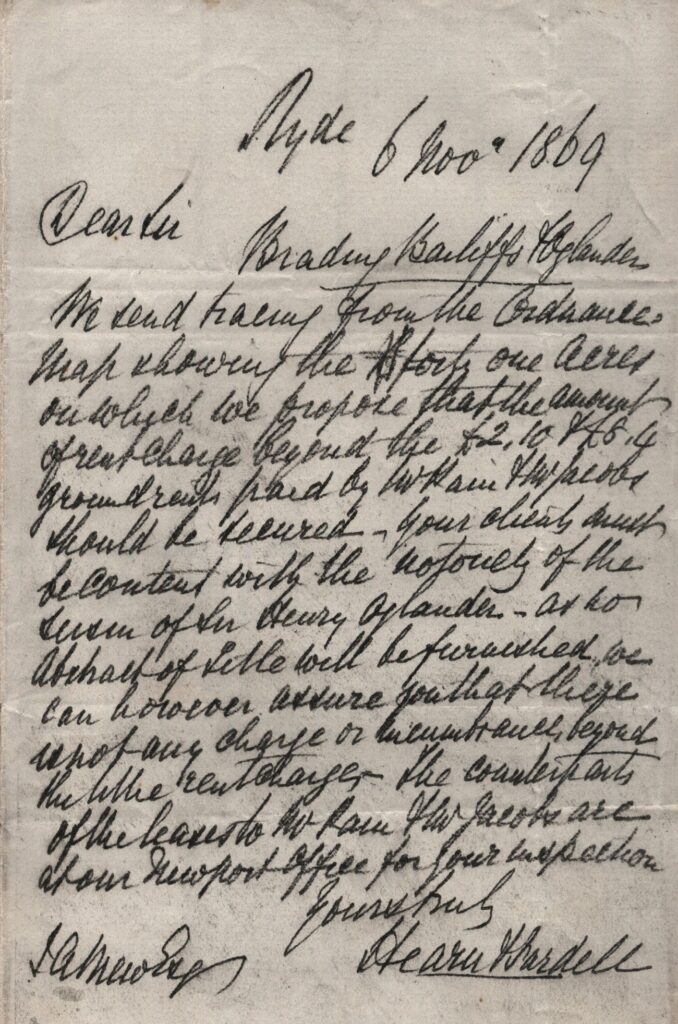 Ryde 6 Novr 1869
Dear Sir
Brading Bailiffs & Oglander
We send tracing from the Ordnance
Map showing the forty one Acres
on which we propose that the amount
of rent charge beyond the £2.10 & £6.4
ground rents paid by Mr Kain & Mr Jacobs
should be secured – your clients must
be content with the notoriety of the
seisin of Sir Henry Oglander – as no
Abstract of Title will be furnished, we
can however assure you that there
is not any charge or incumbrance beyond
the tithe rentcharge – The counterparts
of the leases to Mr Kain & Mr Jacobs are
at our Newport Office for your inspection
Yours truly
J A Mew Esq
Hearn &